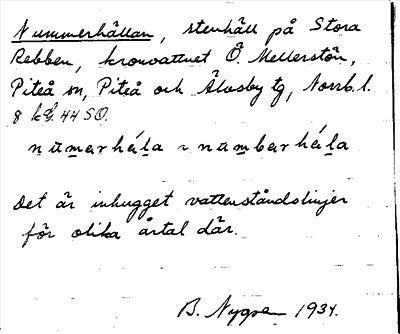 Nummerhällan, stenhäll på Stora
Rebben, kronvattnet Ö. Mellerstön,
Piteå sn, Piteå och Älvsby tg, Norrb. l.
8 44 SO.
numarhála ~ numbarhála
Det är inhugget vattenståndslinjer
för olika årtal där.
B. Nygren 1934.